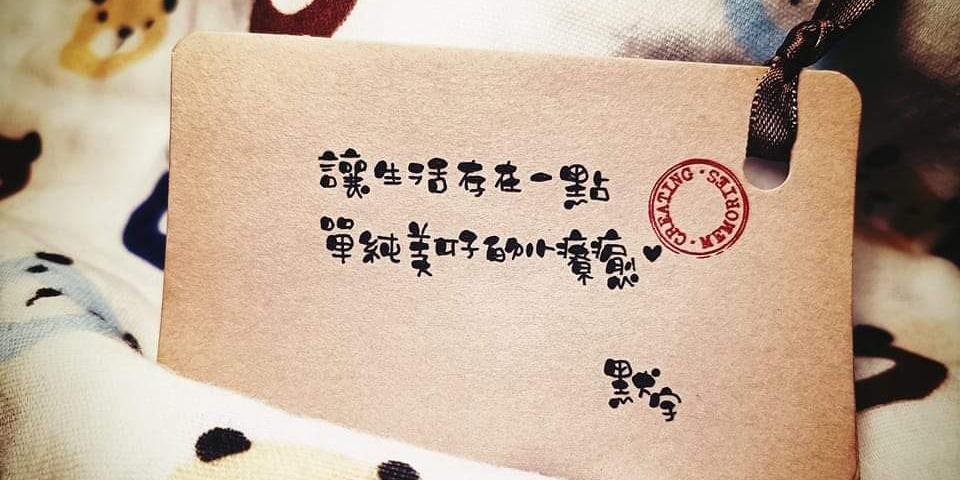 讓生活存在一點
單純美好的小療癒♥
默犬字
CREATING · MEMORIES ·